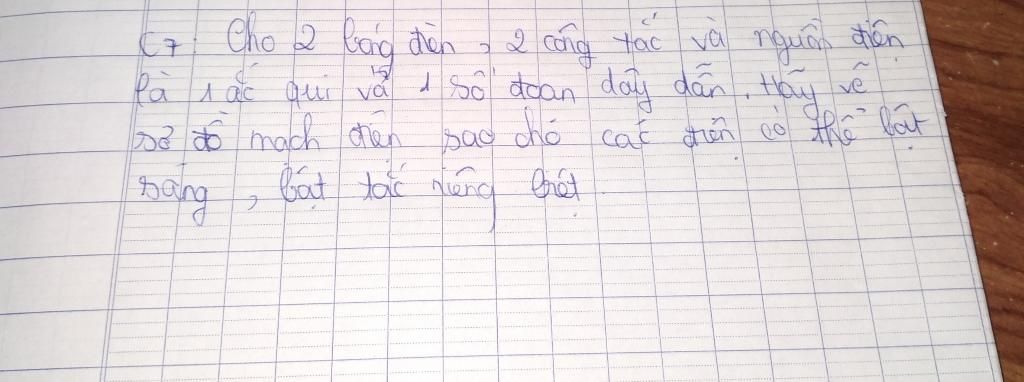 C7: Cho 2 bóng đèn, 2 công tắc và nguồn điện
là 1 ắc qui và 1 số đoạn dây dẫn. Hãy vẽ
sơ đồ mạch điện sao cho các đèn có thể bật
sáng, bật tắt riêng biệt